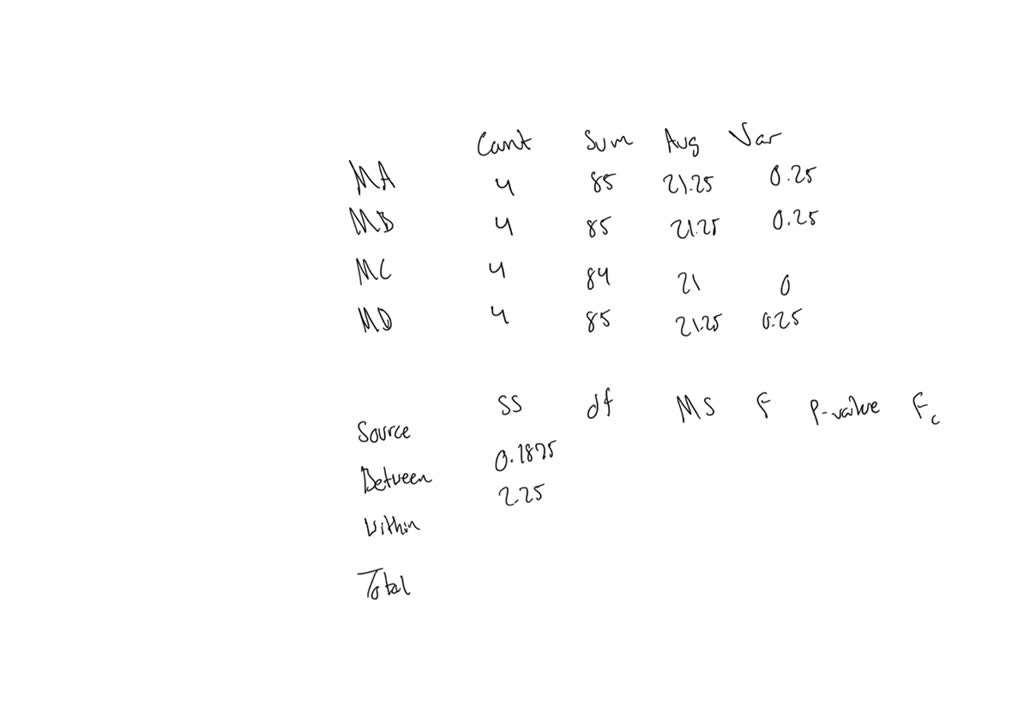 Count Sum Avg Var
MA 4 85 21.25 0.25
MB 4 85 21.25 0.25
MC 4 84 21 0
MD 4 85 21.25 0.25
Source SS df MS F P-value Fc
Between 0.1875
Within 2.25
Total